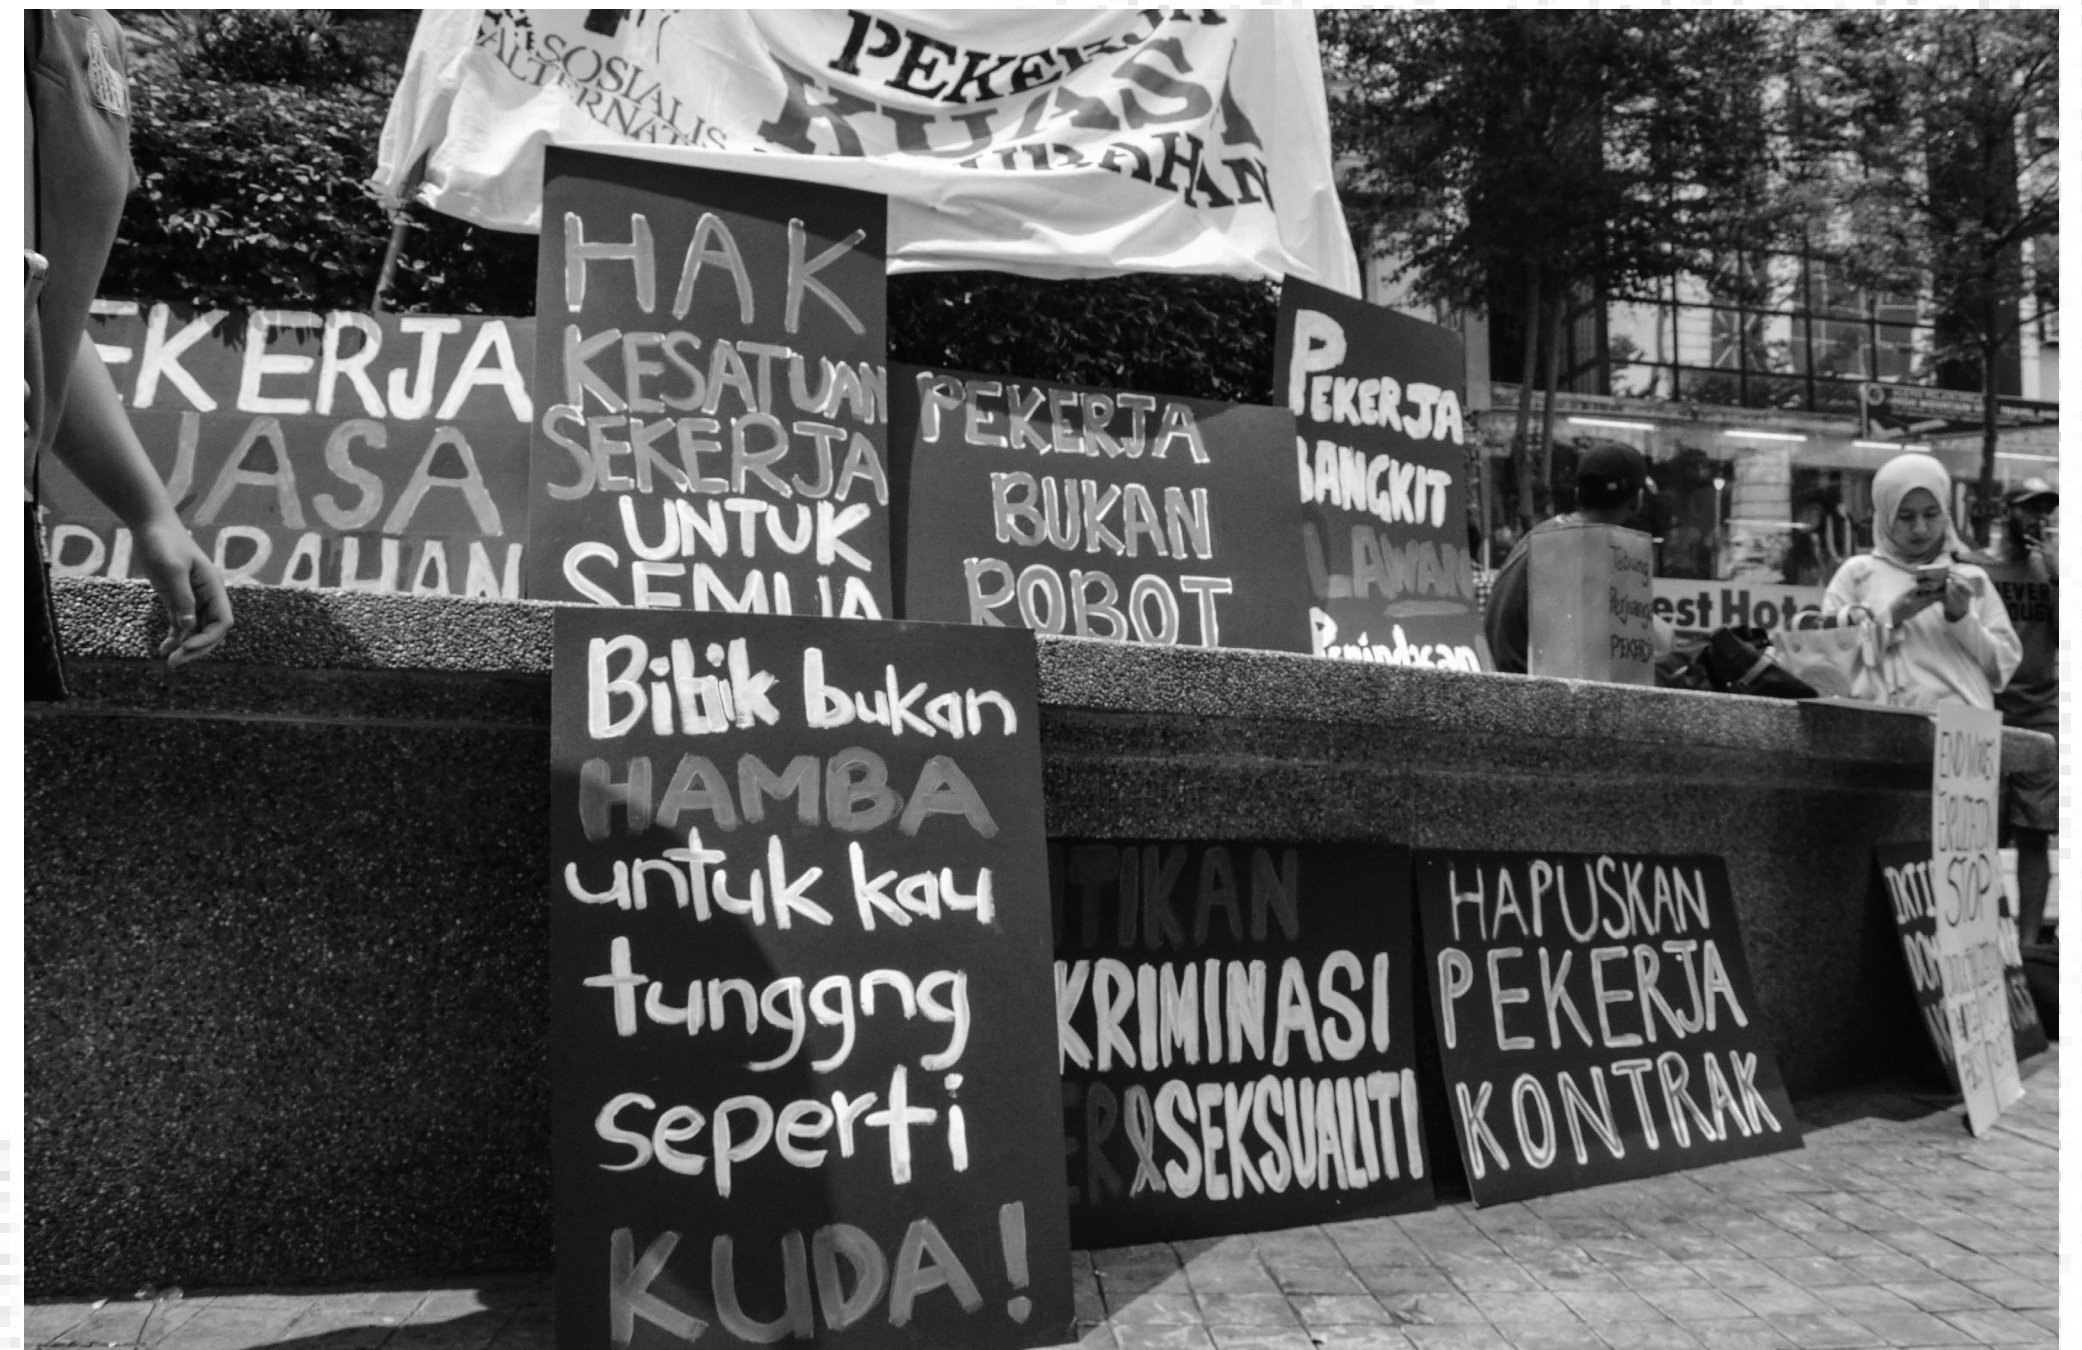 SOSIALIS
ALTERNATIF
PEKERJA
KUASA
EKERJA
UASA
HAK
KESATUAN
SEKERJA
UNTUK
SEMUA
PEKERJA
BUKAN
ROBOT
PEKERJA
BANGKIT
LAWAN
Penindasan
Tabung
PEKERJ
est Hote
EVER
Bibik bukan
HAMBA
untuk kau
tunggng
seperti
KUDA!
TIKAN
KRIMINASI
ER & SEKSUALITI
HAPUSKAN
PEKERJA
KONTRAK
END
STOP